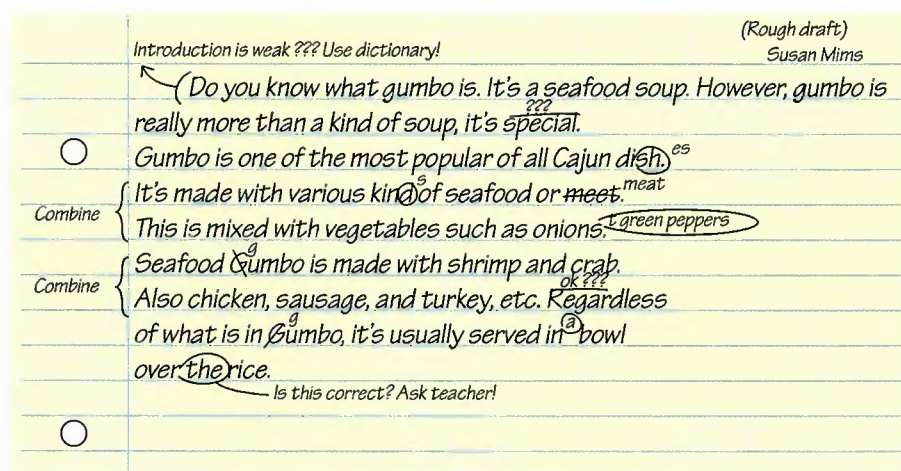 (Rough draft)
Introduction is weak ??? Use dictionary!
Susan Mims
(Do you know what gumbo is. It's a seafood soup. However, gumbo is
???
really more than a kind of soup, it's special.
Gumbo is one of the most popular of all Cajun dish. es
s
It's made with various kind of seafood or meet. meat
Combine
This is mixed with vegetables such as onions. + green peppers
g
Seafood Gumbo is made with shrimp and crab.
Combine
ok ???
Also chicken, sausage, and turkey, etc. Regardless
g
of what is in Gumbo, it's usually served in a bowl
over the rice.
Is this correct? Ask teacher!